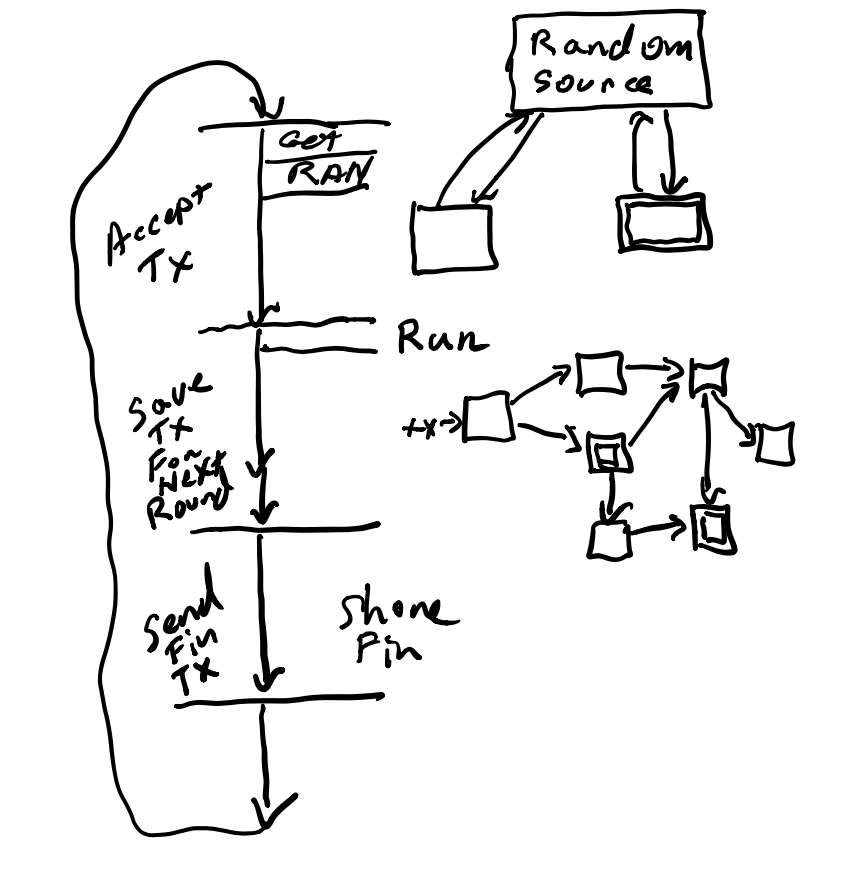 Random
Source
Get
RAN
Accept
TX
Run
Save
TX
For
Next
Round
TX
Send
Fin
TX
Share
Fin